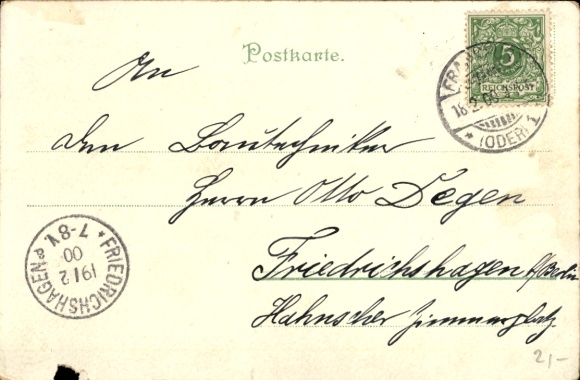 Postkarte.
5
REICHSPOST
FRANKFURT
18.2.00
* (ODER) 1
An
den Bautechniker
Herrn Otto Degen
Friedrichshagen b/Berlin
Hahnscher Zimmerplatz
* FRIEDRICHSHAGEN
19 12
00
7-8V.
2,-